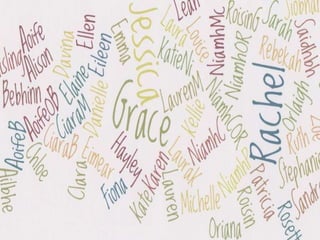 Aoife
Alison
Bebhinn
AoifeOB
AoifeB
Ailbhe
Chloe
Davina
Ellen
Elaine
Eileen
CiaraM
Danielle
CiaraB
Eimear
Clara
Emma
Jessica
Grace
Hayley
Fiona
Kate
Karen
KatieN
Laura
Louise
Leah
LaurenM
Kellie
Lauren
NiamhMc
NiamhOR
NiamhC
NiamhCOR
Michelle
Oriana
Roisin
Patricia
Rachel
Roising
Sarah
Rebekah
Saidhbh
Orlaigh
Ruth
Stephanie
Sandra